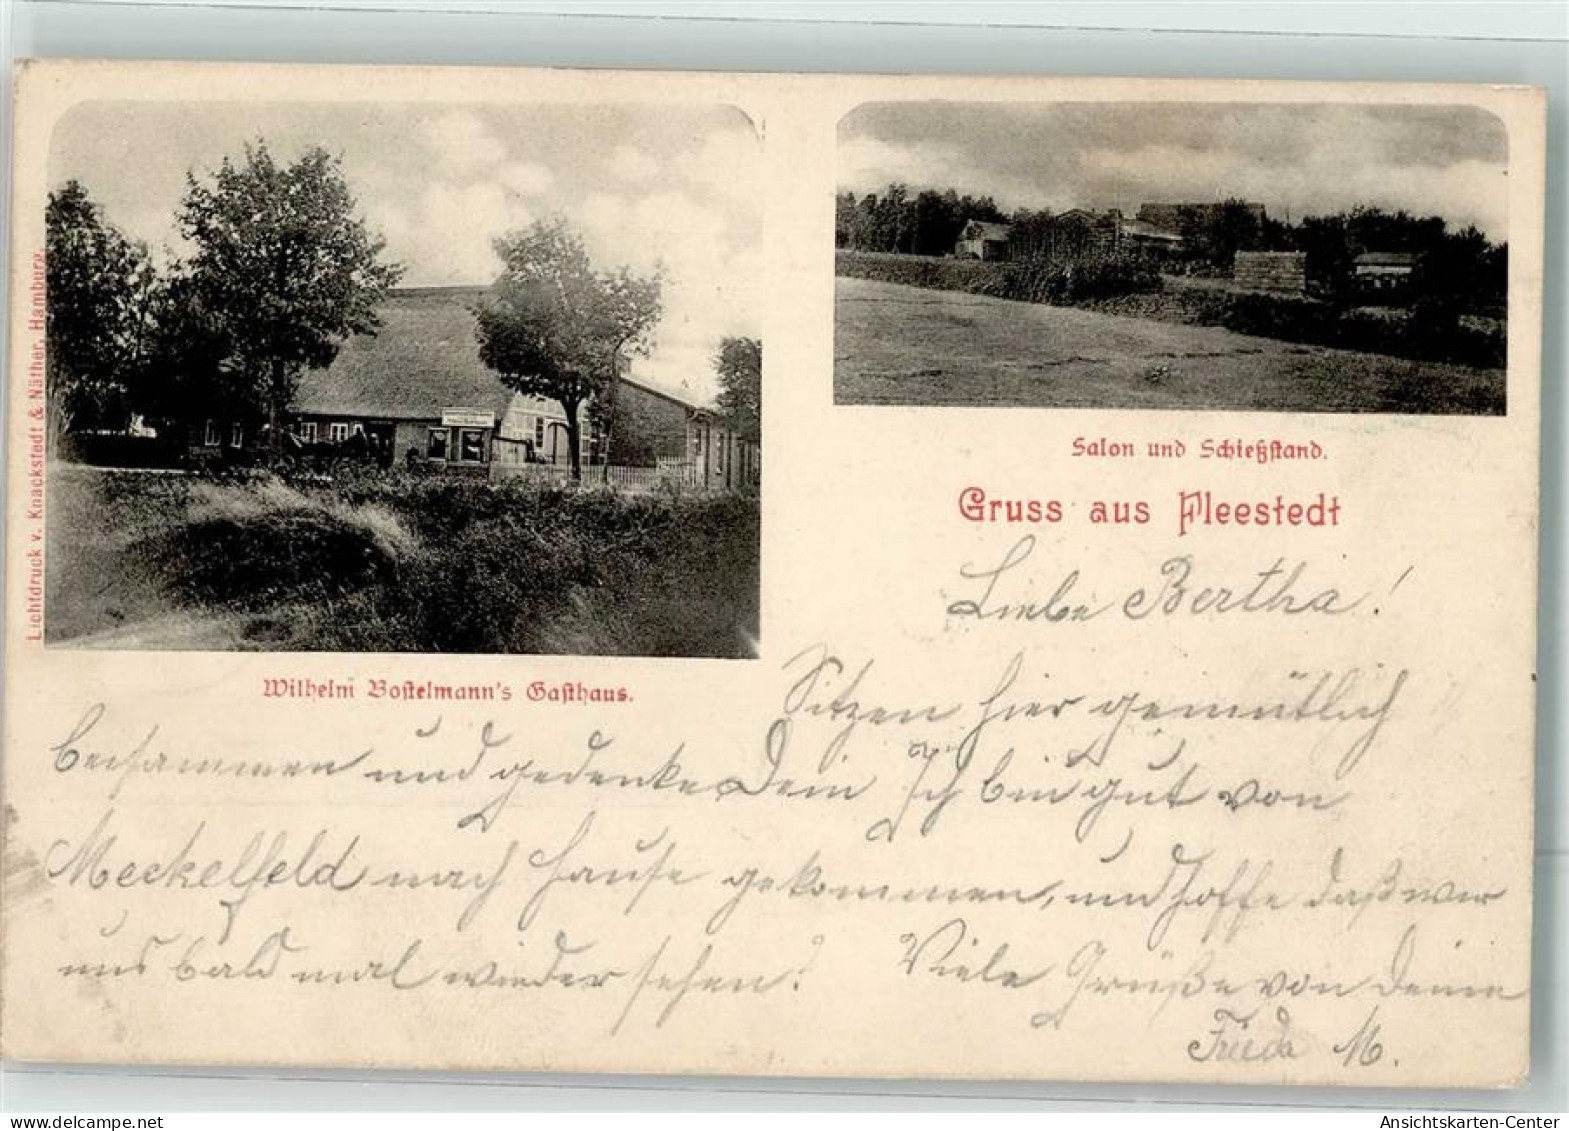 Lichtdruck v. Knackstedt & Näther, Hamburg.
Wilhelm Bostelmann's Gasthaus.
Salon und Schießstand.
Gruss aus Fleestedt
Liebe Bertha!
Sitzen hier gemütlich
beisammen und gedenke Dein Ich bin gut von
Meckelfeld nach Hause gekommen, und hoffe daß wir
uns bald mal wieder sehen? Viele Grüße von Deine
Frieda M.
Ansichtskarten-Center